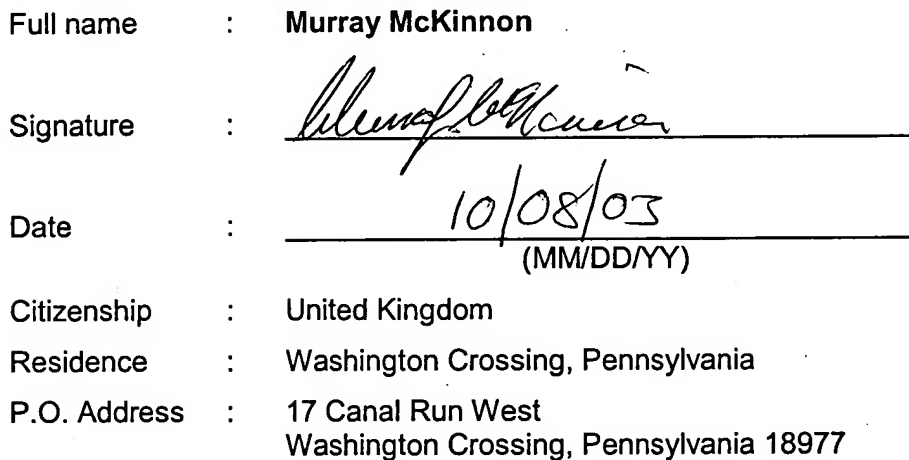 Full name : Murray McKinnon
Signature : Murray McKinnon
Date : 10/08/03
(MM/DD/YY)
Citizenship : United Kingdom
Residence : Washington Crossing, Pennsylvania
P.O. Address : 17 Canal Run West
Washington Crossing, Pennsylvania 18977